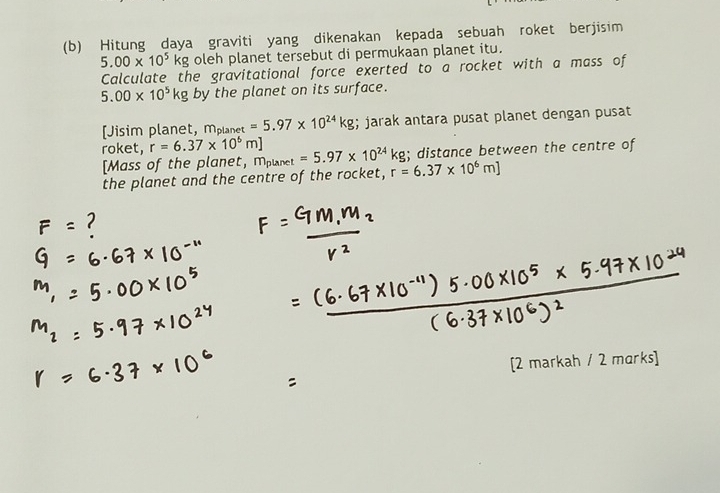 (b) Hitung daya graviti yang dikenakan kepada sebuah roket berjisim
5.00 x 10⁵ kg oleh planet tersebut di permukaan planet itu.
Calculate the gravitational force exerted to a rocket with a mass of
5.00 x 10⁵ kg by the planet on its surface.
[Jisim planet, mplanet = 5.97 x 10²⁴ kg; jarak antara pusat planet dengan pusat
roket, r = 6.37 x 10⁶ m]
[Mass of the planet, mplanet = 5.97 x 10²⁴ kg; distance between the centre of
the planet and the centre of the rocket, r = 6.37 x 10⁶ m]
F = ?
G = 6.67 x 10⁻¹¹
m₁ = 5.00 x 10⁵
m₂ = 5.97 x 10²⁴
r = 6.37 x 10⁶
F = G m₁ m₂
r²
= (6.67 x 10⁻¹¹) 5.00 x 10⁵ x 5.97 x 10²⁴
(6.37 x 10⁶)²
=
[2 markah / 2 marks]